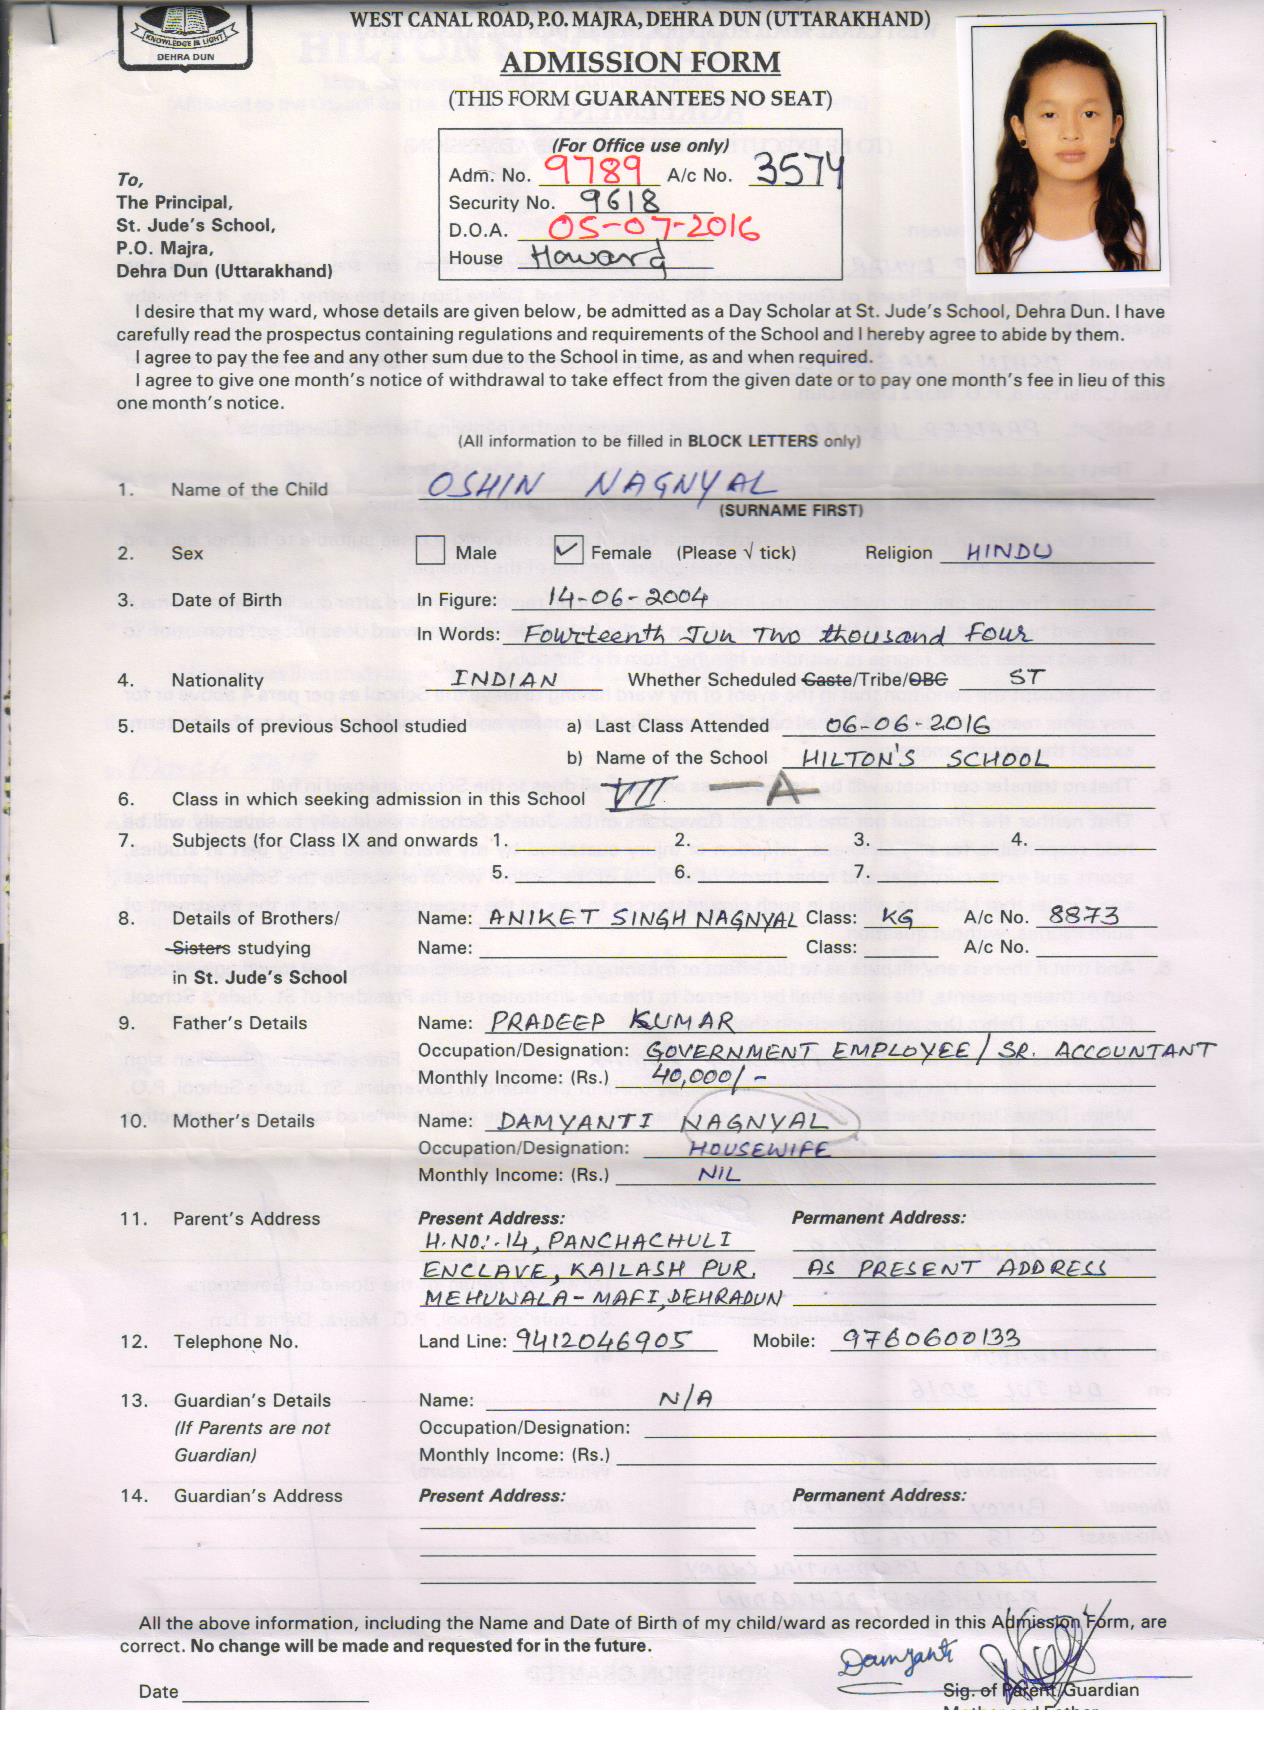 KNOWLEDGE IS LIGHT
DEHRA DUN
WEST CANAL ROAD, P.O. MAJRA, DEHRA DUN (UTTARAKHAND)
ADMISSION FORM
(THIS FORM GUARANTEES NO SEAT)
(For Office use only)
Adm. No. 9789 A/c No. 3574
Security No. 9618
D.O.A. 05-07-2016
House Howard
To,
The Principal,
St. Jude's School,
P.O. Majra,
Dehra Dun (Uttarakhand)
I desire that my ward, whose details are given below, be admitted as a Day Scholar at St. Jude's School, Dehra Dun. I have
carefully read the prospectus containing regulations and requirements of the School and I hereby agree to abide by them.
I agree to pay the fee and any other sum due to the School in time, as and when required.
I agree to give one month's notice of withdrawal to take effect from the given date or to pay one month's fee in lieu of this
one month's notice.
(All information to be filled in BLOCK LETTERS only)
1. Name of the Child OSHIN NAGNYAL
(SURNAME FIRST)
2. Sex Male Female (Please √ tick) Religion HINDU
3. Date of Birth In Figure: 14-06-2004
In Words: Fourteenth Jun Two thousand Four
4. Nationality INDIAN Whether Scheduled Caste/Tribe/OBC ST
5. Details of previous School studied a) Last Class Attended 06-06-2016
b) Name of the School HILTON'S SCHOOL
6. Class in which seeking admission in this School VII - A
7. Subjects (for Class IX and onwards 1. 2. 3. 4.
5. 6. 7.
8. Details of Brothers/ Name: ANIKET SINGH NAGNYAL Class: KG A/c No. 8873
Sisters studying Name: Class: A/c No.
in St. Jude's School
9. Father's Details Name: PRADEEP KUMAR
Occupation/Designation: GOVERNMENT EMPLOYEE/ SR. ACCOUNTANT
Monthly Income: (Rs.) 40,000/-
10. Mother's Details Name: DAMYANTI NAGNYAL
Occupation/Designation: HOUSEWIFE
Monthly Income: (Rs.) NIL
11. Parent's Address Present Address: Permanent Address:
H.NO:-14, PANCHACHULI
ENCLAVE, KAILASH PUR. AS PRESENT ADDRESS
MEHUWALA-MAFI, DEHRADUN
12. Telephone No. Land Line: 9412046905 Mobile: 9760600133
13. Guardian's Details Name: N/A
(If Parents are not Occupation/Designation:
Guardian) Monthly Income: (Rs.)
14. Guardian's Address Present Address: Permanent Address:
All the above information, including the Name and Date of Birth of my child/ward as recorded in this Admission Form, are
correct. No change will be made and requested for in the future.
Damyanti
Date Sig. of Parent/Guardian